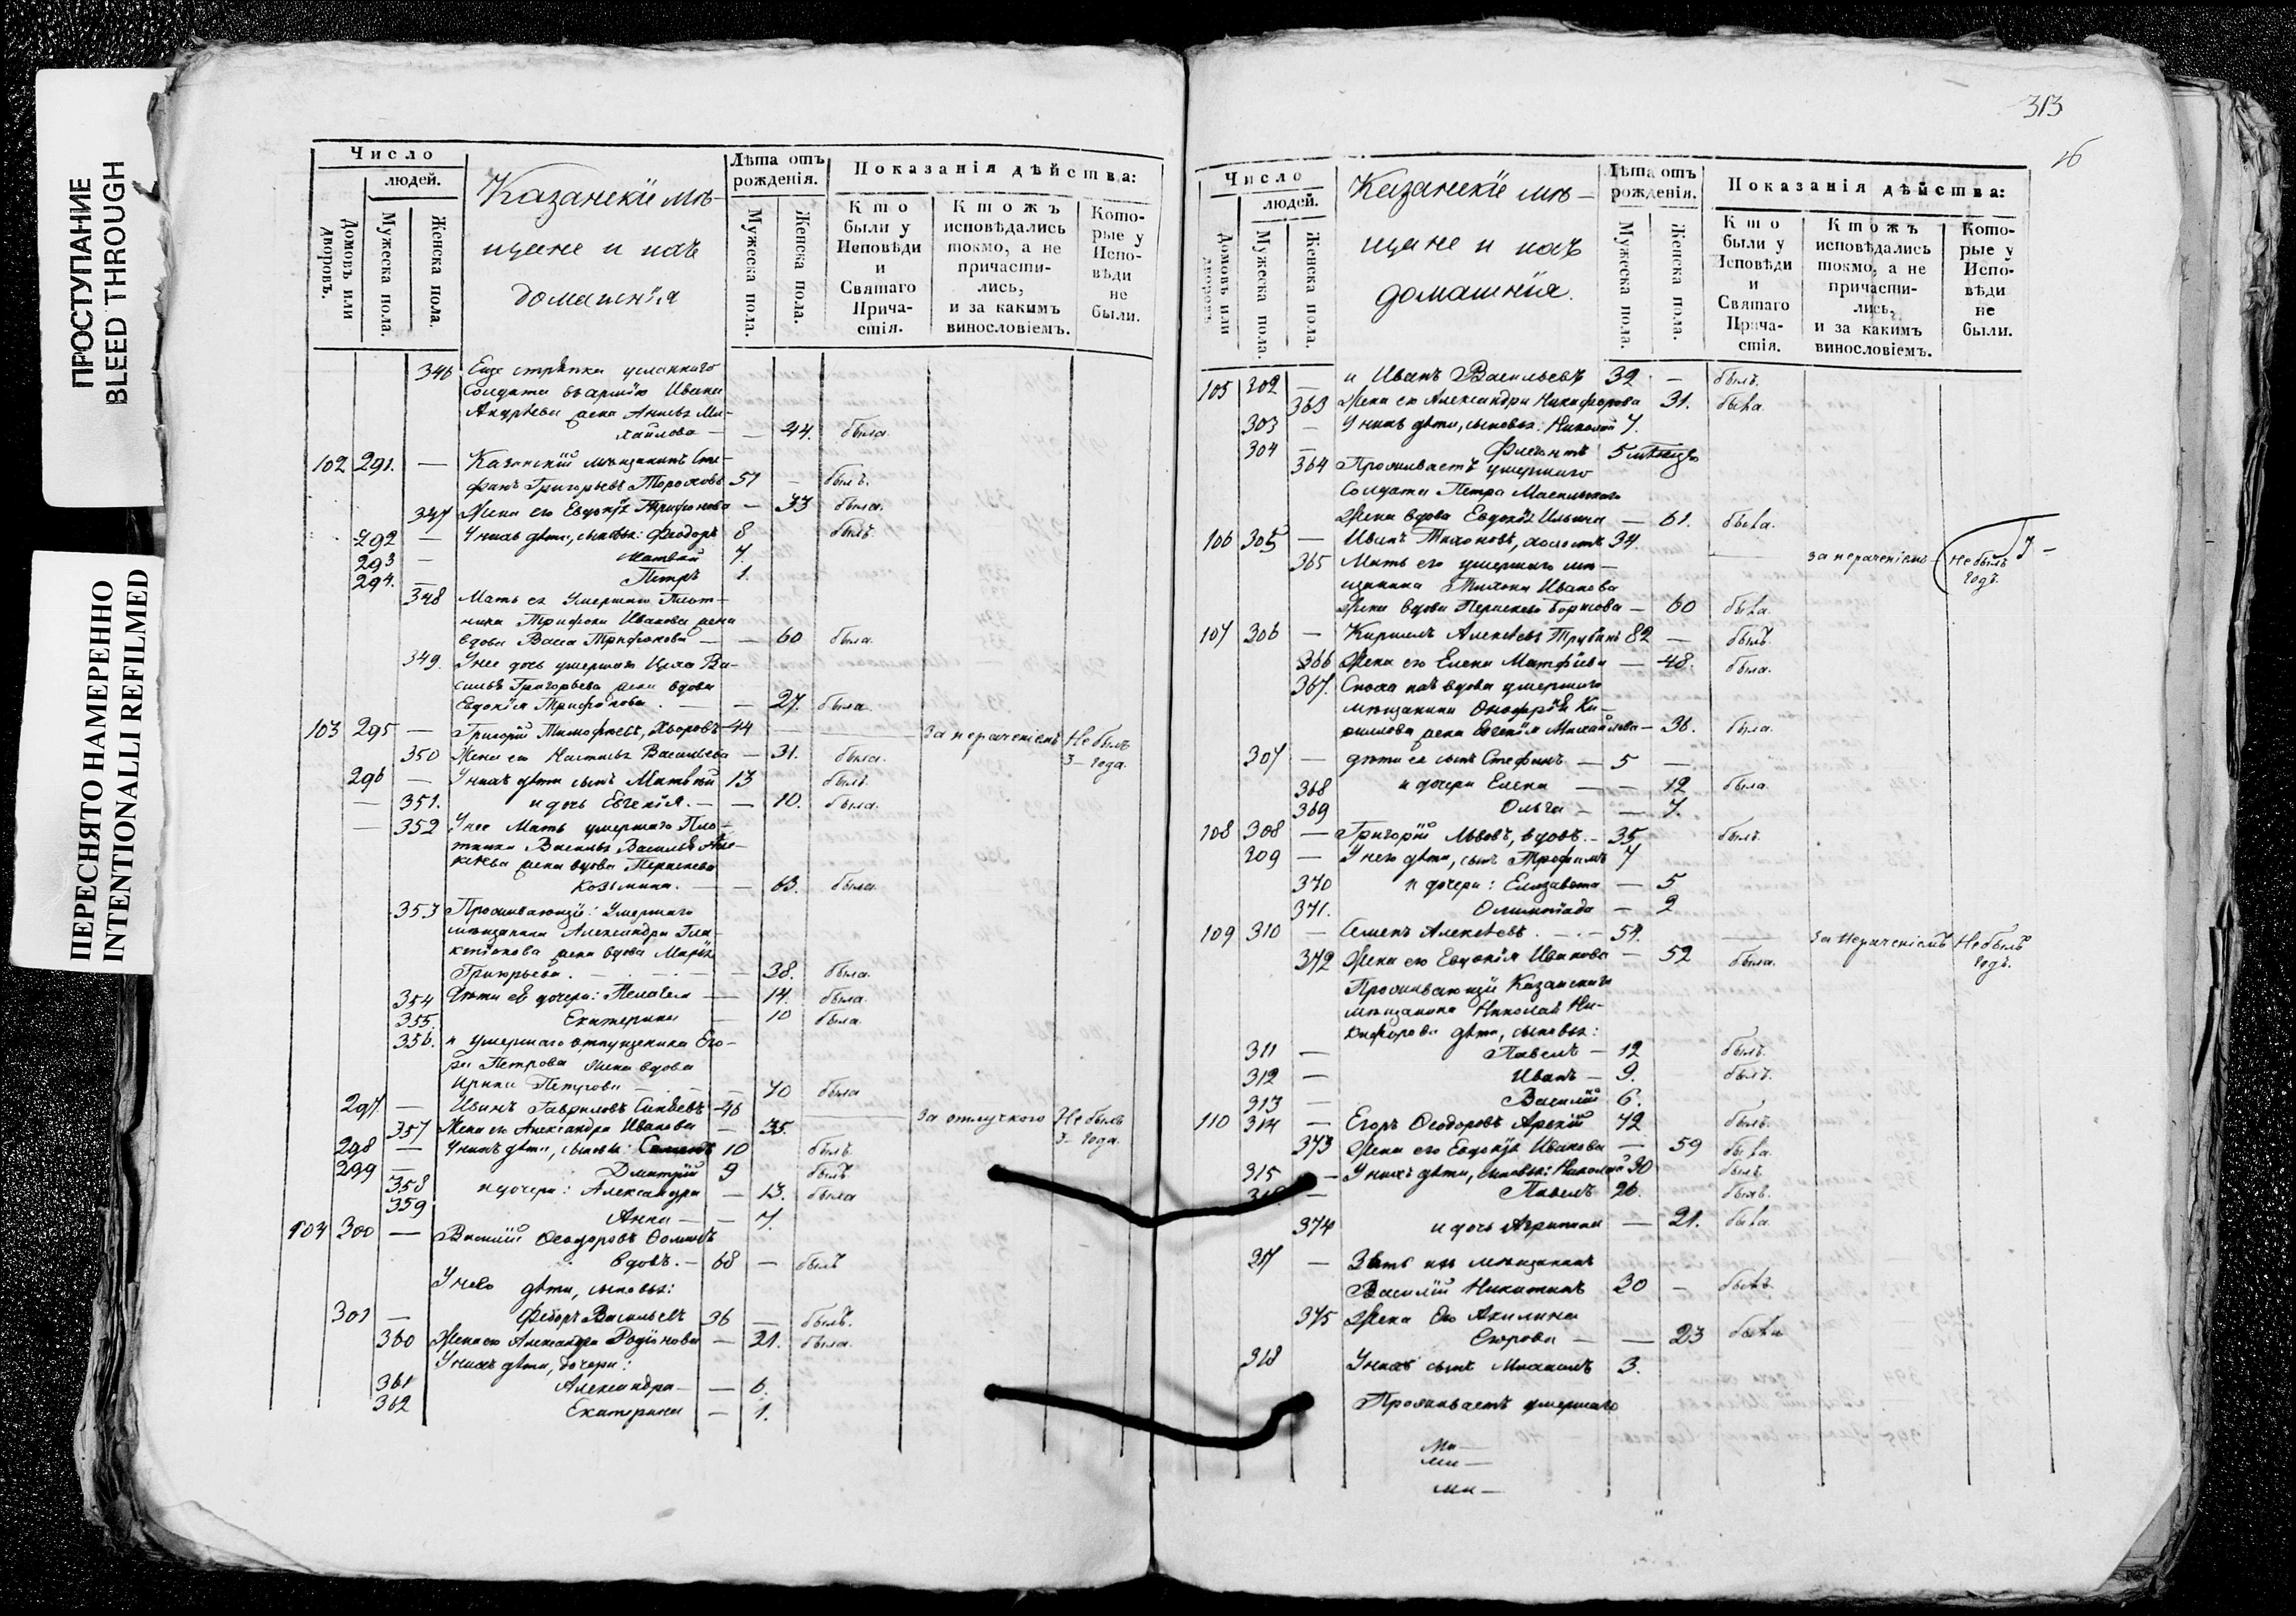 ПРОСТУПАНИЕ
BLEED THROUGH
ПЕРЕСНЯТО НАМЕРЕННО
INTENTIONALLI REFILMED
Число
людей.
Домовъ или дворовъ.
Мужеска пола.
Женска пола.
Казанскіе мѣ-
щане и ихъ
домашнія
Лѣта отъ
рожденія.
Мужеска пола.
Женска пола.
Показанія дѣйства:
Кто
были у
Исповѣди
и
Святаго
Прича-
стія.
Ктожъ
исповѣдались
токмо, а не
причасти-
лись,
и за какимъ
винословіемъ.
Кото-
рые у
Испо-
вѣди
не
были.
346 Еще стрѣлка
Солдата Ивана
Андреева жена Ми-
хайлова — — 44. была.
102 291. — Казанскій мѣщанинъ Сте-
фанъ Григорьевъ 57 — былъ.
347 Жена его Евдокія Трифонова — 33 была.
292 — У нихъ дѣти, сыновья: Феодоръ 8 былъ.
293 — Матвей 7.
294. — Петръ 1.
348 Мать ея умершаго Плот-
ника Трифона Иванова жена
вдова Васса Трифонова — — 60 была.
349. У нее дочь умершаго Ва-
силья Григорьева жена вдова
Евдокія Трифонова. — — 27. была.
103 295 — Григорій Тимофѣевъ, 44 — За нераченіемъ Не былъ
3 года.
350 Жена его Настасья Васильева — 31. была.
296 — У нихъ дѣти сынъ Матвей 13 былъ.
— 351. и дочь Евгенія. — — 10. была.
— 352 У нее Мать умершаго Пло-
тника Василья Але-
ксеева жена вдова Параскева
Козьмина. — — 63. была.
353 Проживающіе: Умершаго
мѣщанина Александра Гла-
жена вдова Марья
Григорьева. — 38. была.
354 Дѣти ея дочери: Пелагея — 14. была.
355. Екатерина — 10 была.
356. и умершаго отпущеника Его-
ра Петрова жена вдова
Ирина Петрова — 70 была
297. — Иванъ Гавриловъ 46 За отлучкою Не былъ
3 года.
357 Жена его Александра Иванова — 35.
298 — У нихъ дѣти, сыновья: Семенъ 10 былъ.
299 — Дмитрій 9 былъ
358 и дочери: Александра — 13. была
359 Анна — — 7.
104 300 — Василій Ѳеодоровъ
вдовъ. — 68 — былъ
У него дѣти, сыновья:
301 — Федоръ Васильевъ 36 — былъ.
360 Жена его Александра Родіонова — 21. была.
У нихъ дѣти, дочери:
361 Александра — — 6.
362 Екатерина — 1.
313
16
Число
людей.
Домовъ или дворовъ.
Мужеска пола.
Женска пола.
Казанскіе мѣ-
щане и ихъ
домашнія.
Лѣта отъ
рожденія.
Мужеска пола.
Женска пола.
Показанія дѣйства:
Кто
были у
Исповѣди
и
Святаго
Прича-
стія.
Ктожъ
исповѣдались
токмо, а не
причасти-
лись,
и за какимъ
винословіемъ.
Кото-
рые у
Испо-
вѣди
не
были.
105 302 — и Иванъ Васильевъ 32 — былъ.
363 Жена его Александра Никифорова 31. была.
303 — У нихъ дѣти, сыновья: Николай 7.
304 — 5 мѣсяцъ
364 Проживаетъ умершаго
Солдата Петра
Жена вдова Евдокія Ильина — 61. была.
106 305 — Иванъ Тихоновъ, холостъ 34 за нераченіемъ Не былъ
годъ.
365 Мать его умершаго мѣ-
щанина Тихона Иванова
жена вдова Параскева — 60 была.
107 306 — Кирилъ Алексѣевъ 82 — былъ.
366 Жена его Елена Матфѣева — 48. была.
367. Сноха ихъ вдова умершаго
мѣщанина Онофрія Ки-
рилова жена Евгенія Михайлова — 36. была.
307 — дѣти ея сынъ Стефанъ — 5 —
368 и дочери Елена — — 12 была
369 Ольга — — 7.
108 308 — Григорій Львовъ, вдовъ. — 35 былъ.
309 — У него дѣти, сынъ Трофимъ 7
370 и дочери: Елизавета — 5
371. Олимпіада — 2
109 310 — Семенъ Алексѣевъ — 54. За нераченіемъ Не былъ
годъ.
372 Жена его Евдокія Иванова — 52 была.
Проживающіе Казанскаго
мѣщанина Николая Ни-
кифорова дѣти, сыновья:
311 — Павелъ — 12 былъ.
312 — Иванъ — 9. былъ.
313 — Василій 6.
110 314 — Егоръ Ѳеодоровъ 72 былъ.
373 Жена его Евдокія Иванова — 59 была.
315 — У нихъ дѣти, сыновья: Николай 30 былъ.
— Павелъ 26. былъ.
374 и дочь Агрипина — 21. была.
317 — Зять ихъ мѣщанинъ
Василій Никитинъ 20 — былъ.
375 Жена Его Акилина
Егорова — — 23 была
318 У нихъ сынъ Михаилъ 3.
Проживаетъ умершаго
Мѣ—
мѣ—
мѣ—